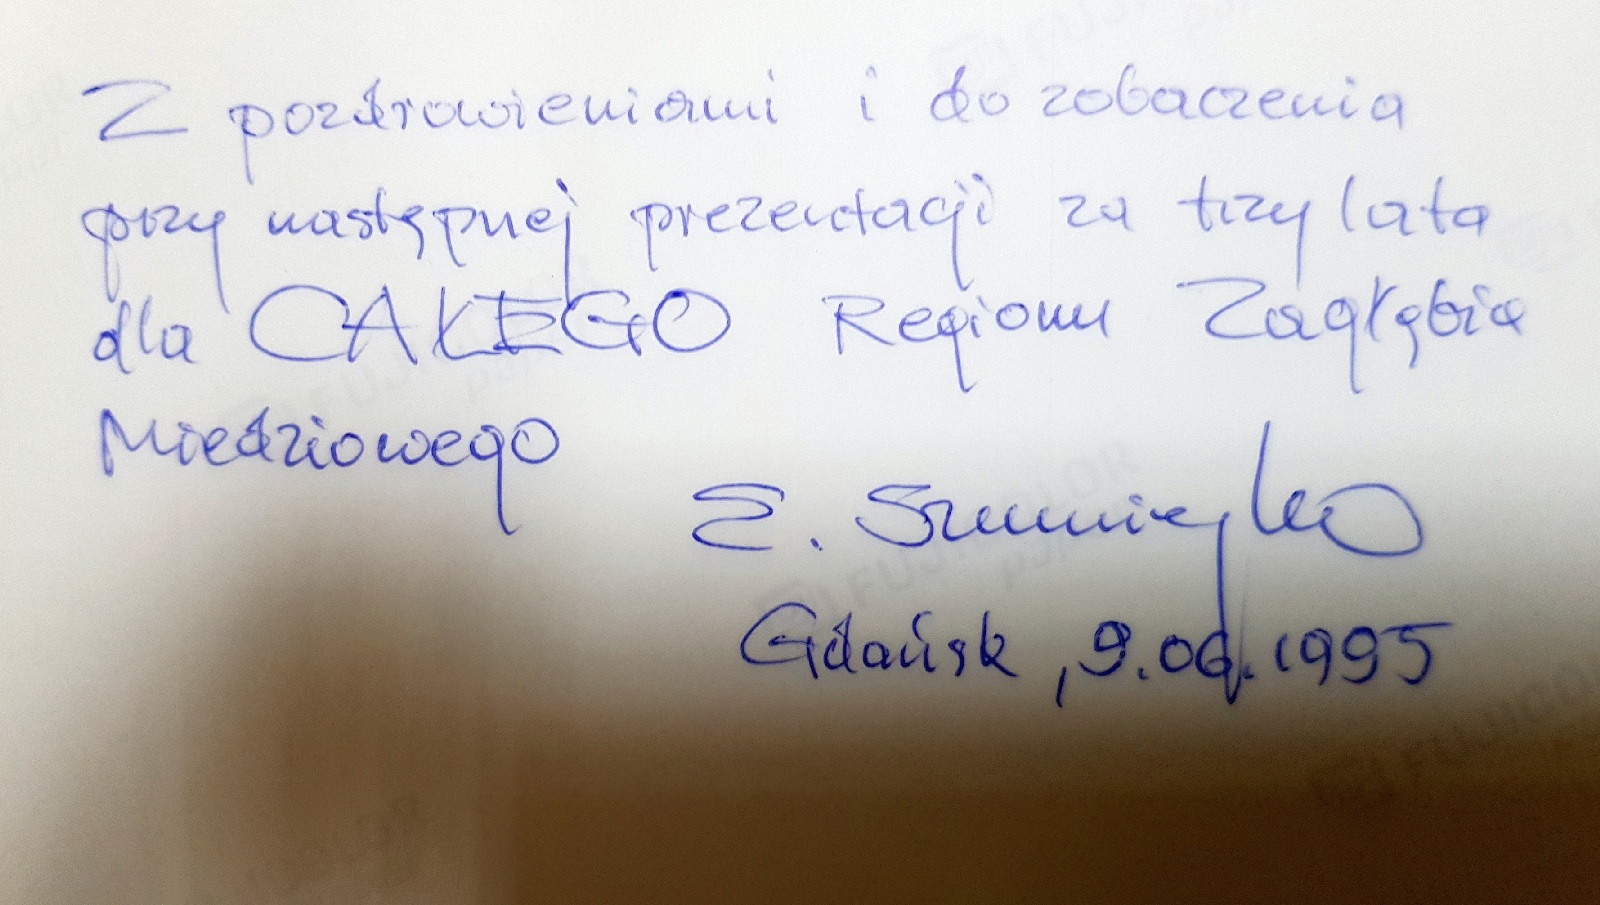 Z pozdrowieniami i do zobaczenia
przy następnej prezentacji za trzy lata
dla CAŁEGO Regionu Zagłębia
Miedziowego
E.
Gdańsk, 9.06.1995